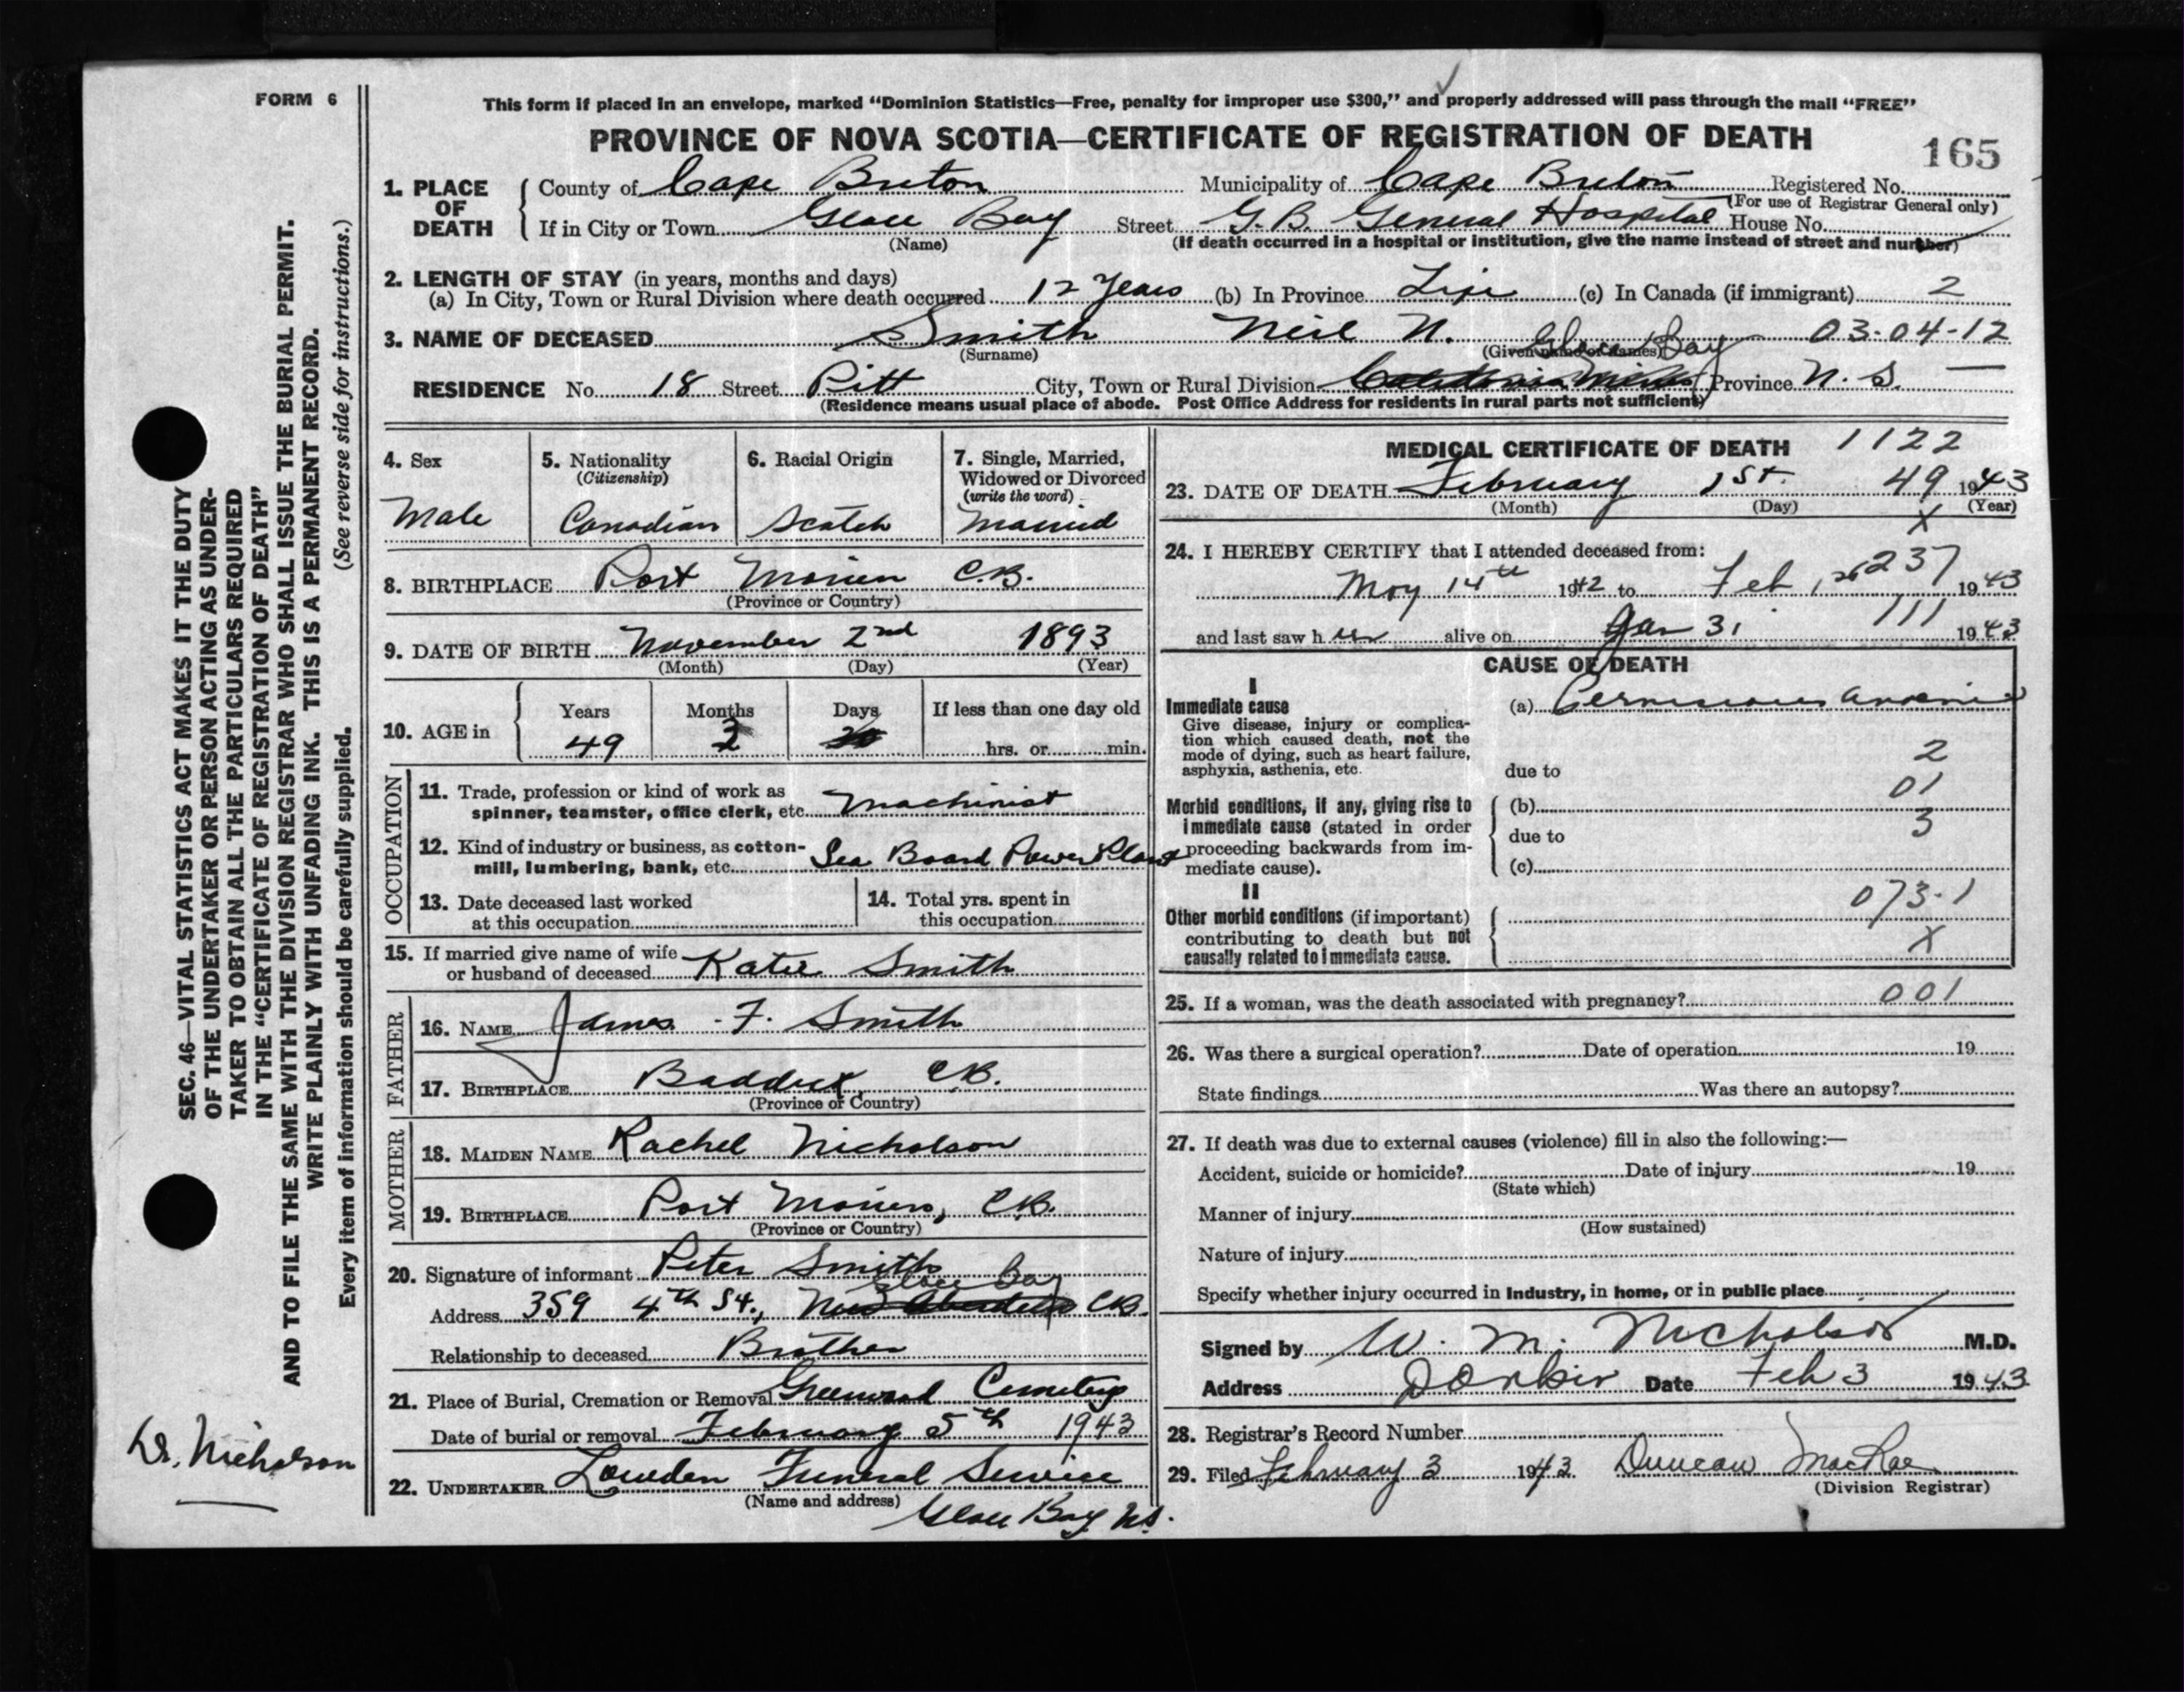 FORM 6
This form if placed in an envelope, marked “Dominion Statistics—Free, penalty for improper use $300,” and properly addressed will pass through the mail “FREE”
PROVINCE OF NOVA SCOTIA—CERTIFICATE OF REGISTRATION OF DEATH
165
1. PLACE OF DEATH
County of Cape Breton Municipality of Cape Breton Registered No.
(For use of Registrar General only)
If in City or Town Glace Bay Street G.B. General Hospital House No.
(Name) (If death occurred in a hospital or institution, give the name instead of street and number)
2. LENGTH OF STAY (in years, months and days)
(a) In City, Town or Rural Division where death occurred 12 Years (b) In Province Life (c) In Canada (if immigrant) 2
3. NAME OF DECEASED Smith Neil N. 03-04-12
(Surname) (Given name or names)
Glace Bay
RESIDENCE No. 18 Street Pitt City, Town or Rural Division Caledonia Mines Province N. S. —
(Residence means usual place of abode. Post Office Address for residents in rural parts not sufficient)
4. Sex
Male
5. Nationality
(Citizenship)
Canadian
6. Racial Origin
Scotch
7. Single, Married,
Widowed or Divorced
(write the word)
Married
8. BIRTHPLACE Port Morien C.B.
(Province or Country)
9. DATE OF BIRTH November 2nd 1893
(Month) (Day) (Year)
10. AGE in
Years Months Days If less than one day old
49 hrs. or min.
OCCUPATION
11. Trade, profession or kind of work as
spinner, teamster, office clerk, etc. Machinist
12. Kind of industry or business, as cotton-
mill, lumbering, bank, etc. Sea Board Power Plant
13. Date deceased last worked
at this occupation
14. Total yrs. spent in
this occupation
15. If married give name of wife
or husband of deceased Katie Smith
FATHER
16. NAME James F. Smith
17. BIRTHPLACE Baddeck C.B.
(Province or Country)
MOTHER
18. MAIDEN NAME Rachel Nicholson
19. BIRTHPLACE Port Morien, C.B.
(Province or Country)
20. Signature of informant Peter Smith
Glace Bay
Address 359 4th St., New Aberdeen C.B.
Relationship to deceased Brother
21. Place of Burial, Cremation or Removal Greenwood Cemetery
Date of burial or removal February 5th 1943
22. UNDERTAKER Lowden Funeral Service
(Name and address)
Glace Bay N.S.
MEDICAL CERTIFICATE OF DEATH 1122
23. DATE OF DEATH February 1st. 49 1943
(Month) (Day) (Year)
X
24. I HEREBY CERTIFY that I attended deceased from:
237
May 14th 1942 to Feb 1943
111
and last saw h alive on Jan 31 1943
CAUSE OF DEATH
I
Immediate cause
Give disease, injury or complica-
tion which caused death, not the
mode of dying, such as heart failure,
asphyxia, asthenia, etc.
(a) Pernicious Anaemia
2
due to
01
Morbid conditions, if any, giving rise to
immediate cause (stated in order
proceeding backwards from im-
mediate cause).
(b)
3
due to
(c)
II
Other morbid conditions (if important)
contributing to death but not
causally related to immediate cause.
073-1
X
25. If a woman, was the death associated with pregnancy? 001
26. Was there a surgical operation? Date of operation 19
State findings Was there an autopsy?
27. If death was due to external causes (violence) fill in also the following:—
Accident, suicide or homicide? Date of injury 19
(State which)
Manner of injury
(How sustained)
Nature of injury
Specify whether injury occurred in Industry, in home, or in public place
Signed by W. M. Nicholson M.D.
Address Donkin Date Feb 3 1943
28. Registrar's Record Number
29. Filed February 3 1943 Duncan MacRae
(Division Registrar)
SEC. 46—VITAL STATISTICS ACT MAKES IT THE DUTY
OF THE UNDERTAKER OR PERSON ACTING AS UNDER-
TAKER TO OBTAIN ALL THE PARTICULARS REQUIRED
IN THE “CERTIFICATE OF REGISTRATION OF DEATH”
AND TO FILE THE SAME WITH THE DIVISION REGISTRAR WHO SHALL ISSUE THE BURIAL PERMIT.
WRITE PLAINLY WITH UNFADING INK. THIS IS A PERMANENT RECORD.
Every item of information should be carefully supplied. (See reverse side for instructions.)
Dr. Nicholson